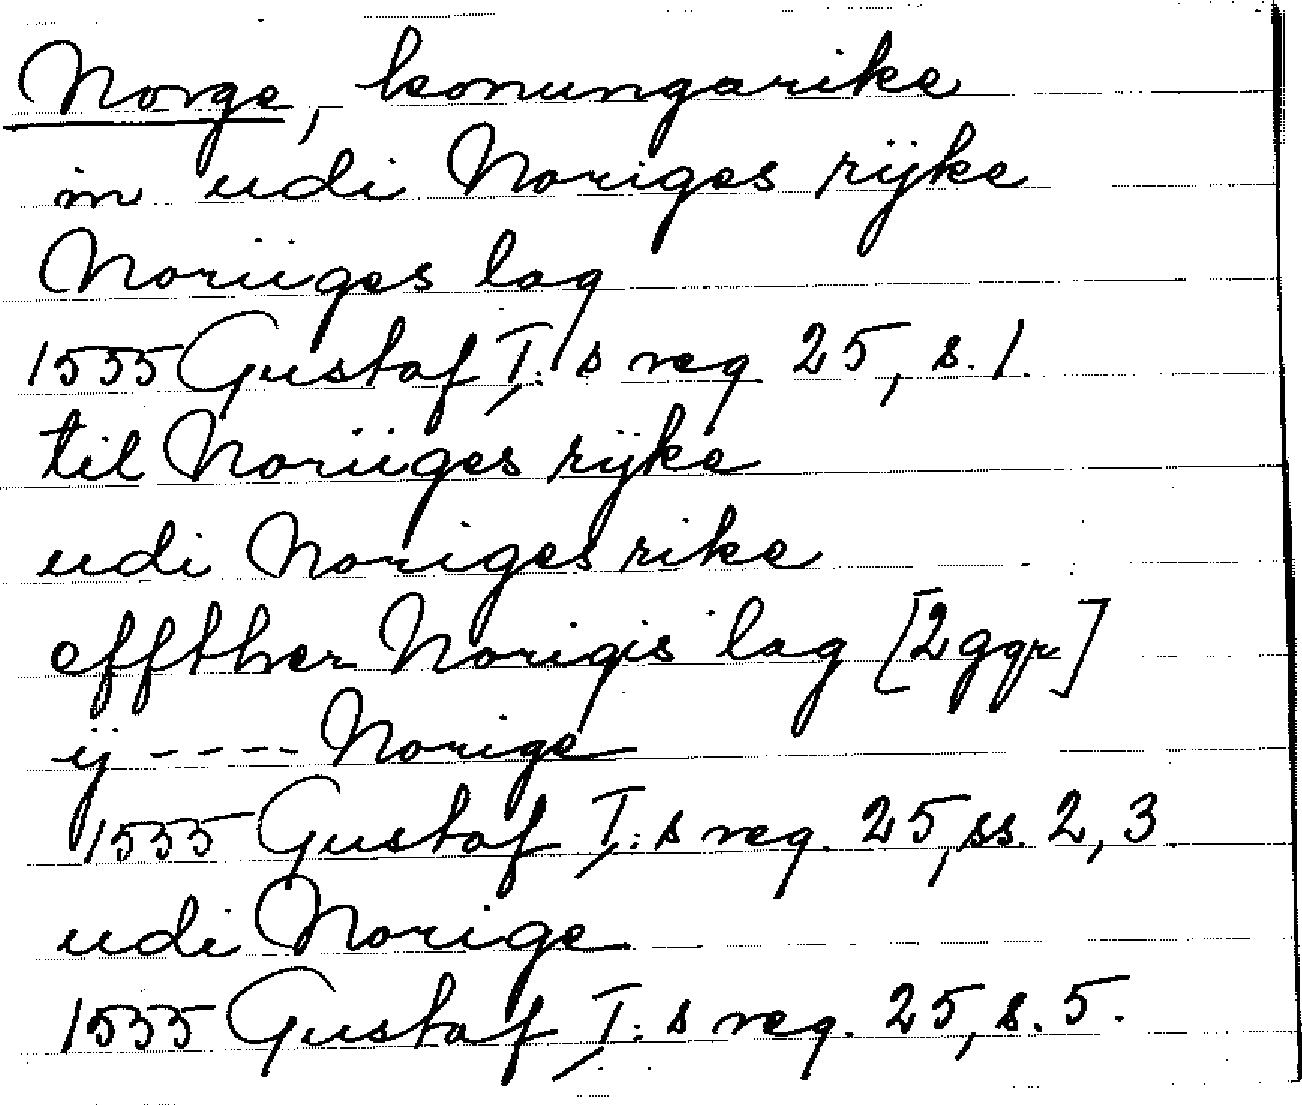 Norge, konungarike
in udi Noriges rijke
Noriiges lag
1555 Gustaf I:s reg 25, s. 1.
til Noriiges rijke
udi Noriges rike
effther Norigis lag [2ggr]
ij ---- Norige
1555 Gustaf I:s reg. 25, ss. 2, 3
udi Norige
1555 Gustaf I:s reg. 25, s. 5.